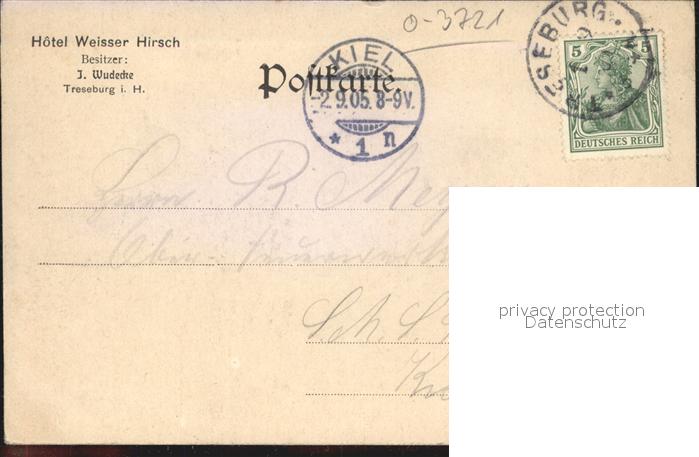 Hôtel Weisser Hirsch
Besitzer:
J. Wudecke
Treseburg i. H.
Postkarte.
O-3721
KIEL
2.9.05. 8-9V.
* 1 n
TRESEBURG
5 5
DEUTSCHES REICH
Herrn R.
Ober-
S.M.S.
privacy protection
Datenschutz